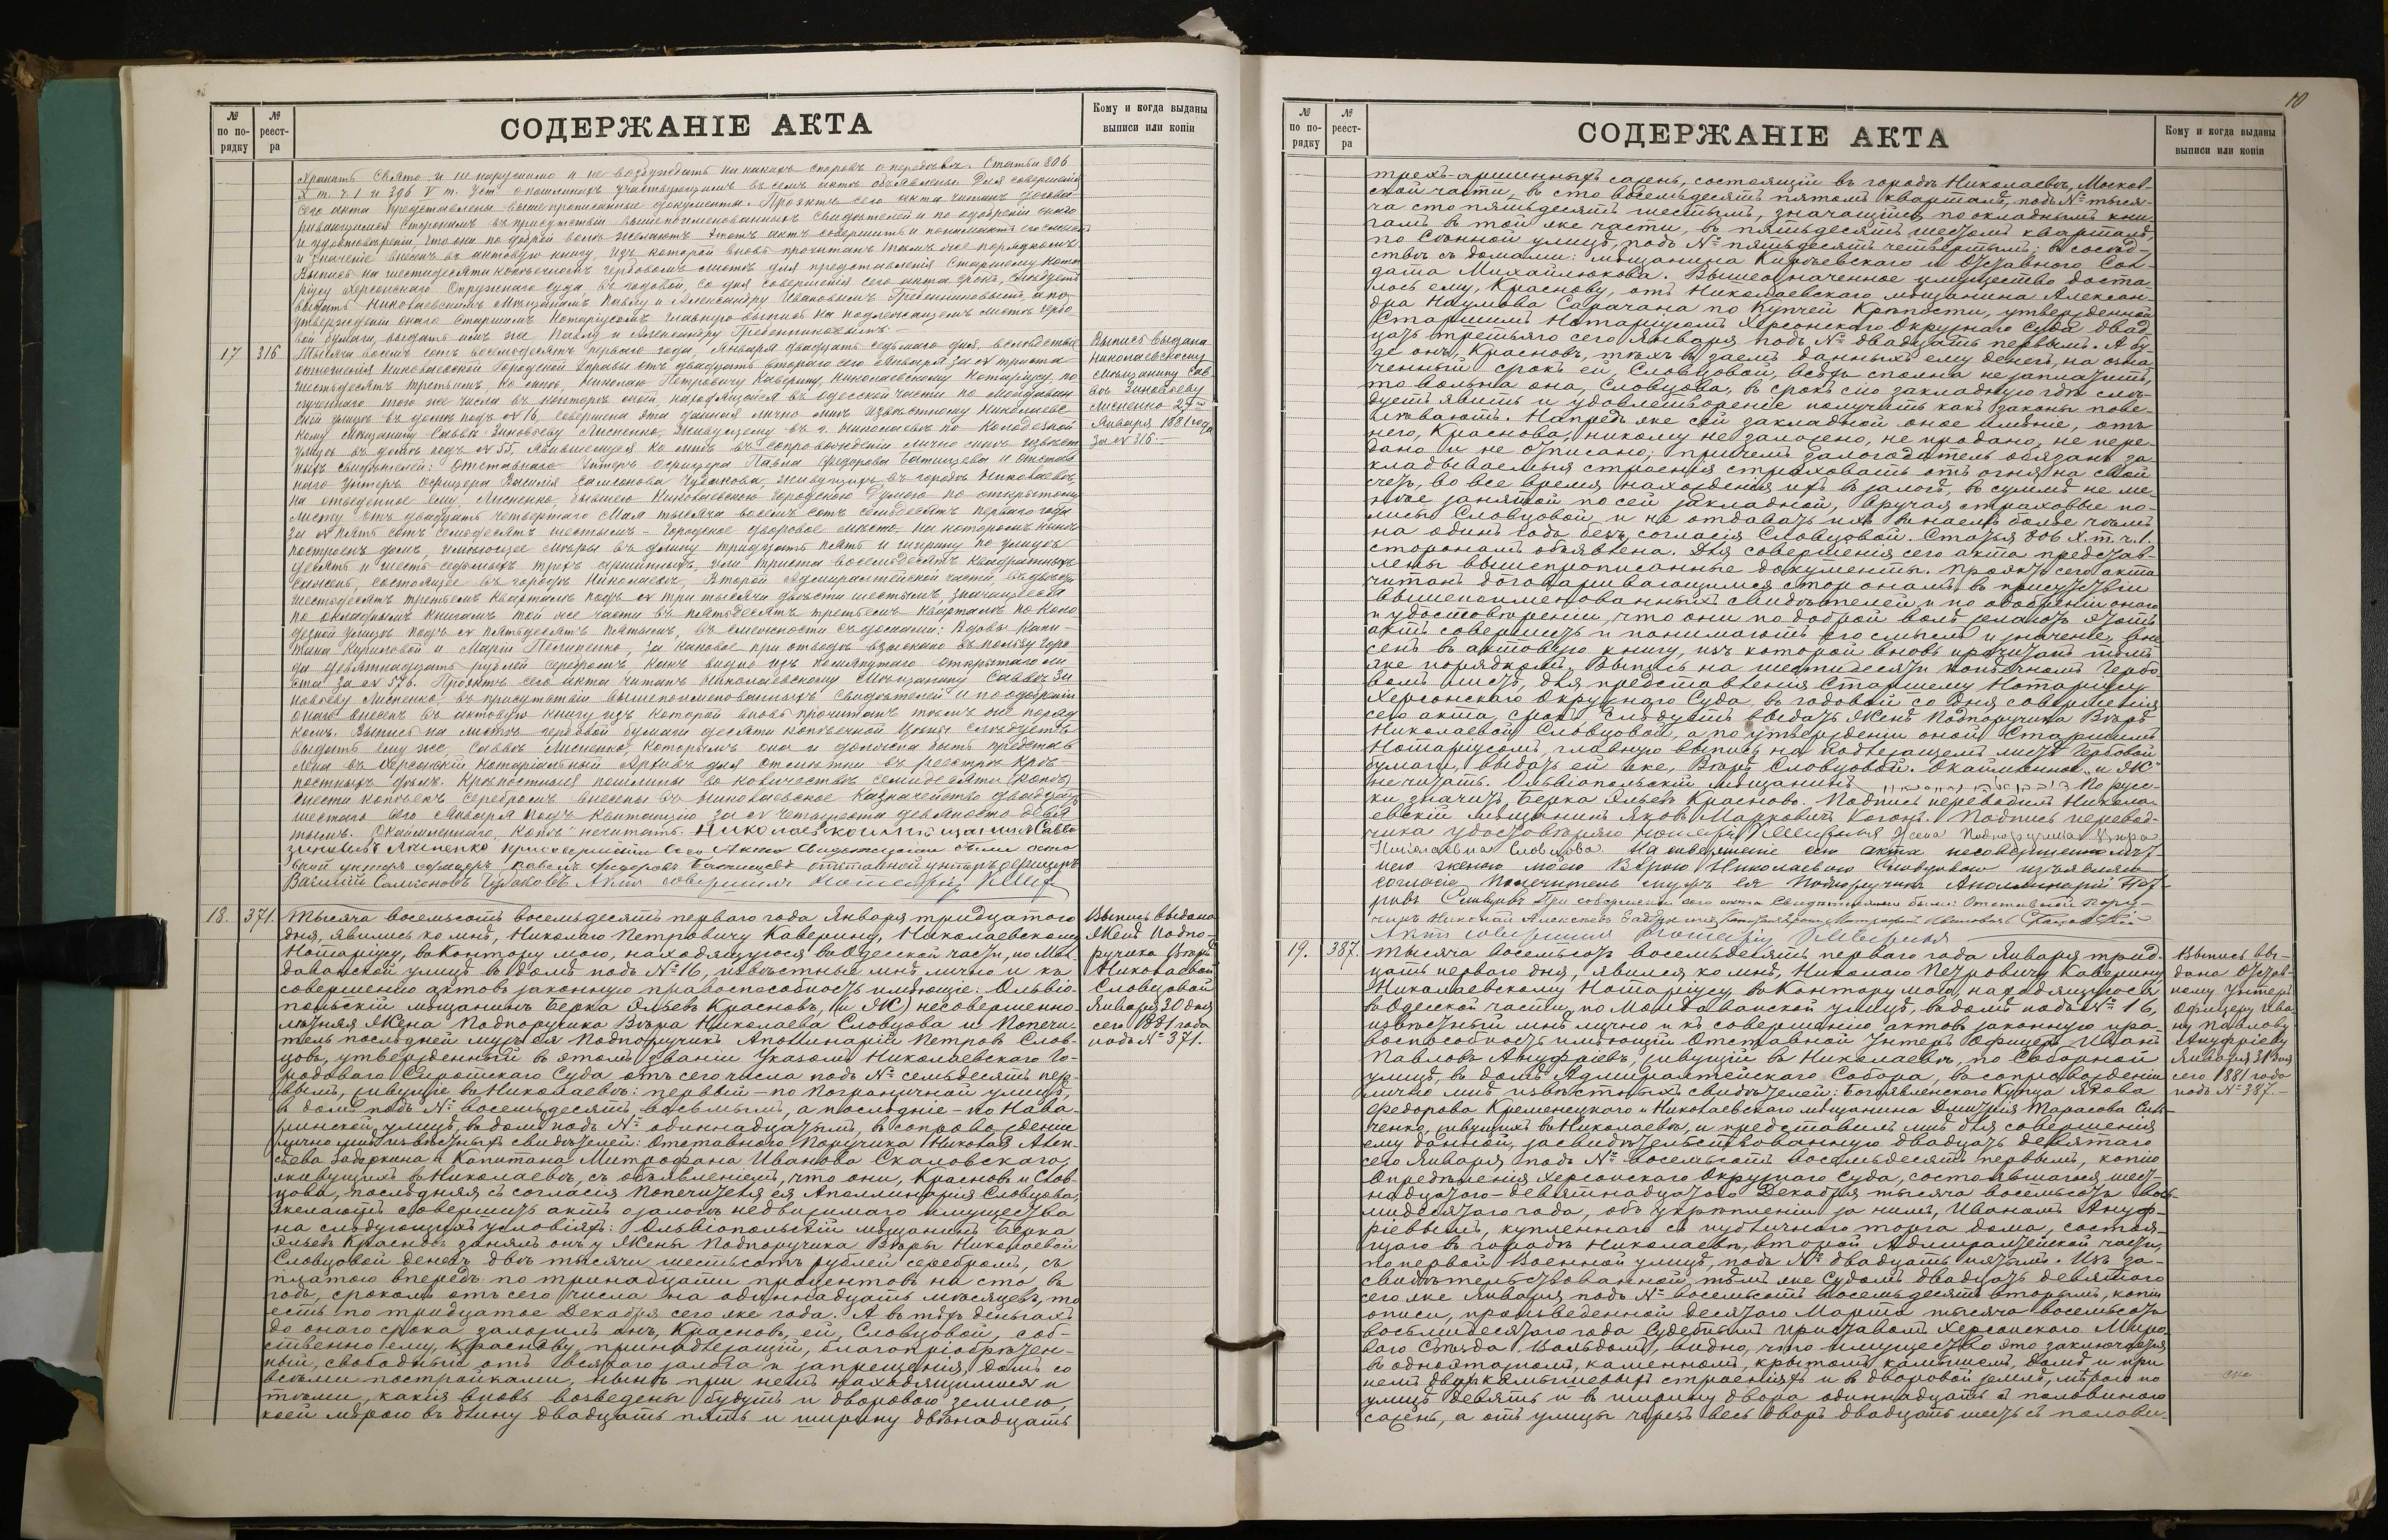 № по по-рядку
№ реест-ра
СОДЕРЖАНІЕ АКТА
Кому и когда выданы выписи или копіи
хранить свято и ненарушимо и не возбуждать ни какихъ споровъ о передачѣ. Статьи 806
X т. ч. 1 и 396 V т. Уст. о пошлинахъ участвующимъ въ семъ актѣ объявлены. Для совершенія
сего акта представлены вышепрописанные документы. Проэктъ сего акта читанъ догова-
ривающимся сторонамъ въ присутствіи вышепоименованныхъ свидѣтелей и по одобреніи онаго
и удостовѣреніи, что они по доброй волѣ желаютъ этотъ актъ совершить и понимаютъ его смыслъ
и значеніе внесенъ въ актовую книгу, изъ которой вновь прочитанъ тѣмъ же порядкомъ.
Выпись на шестидесяти копѣечномъ гербовомъ листѣ для представленія Старшему Нота-
ріусу Херсонскаго Окружнаго Суда, въ годовой, со дня совершенія сего акта срокъ, слѣдуетъ
выдать Николаевскимъ Мѣщанамъ Павлу и Александру Ивановымъ Гребенниковымъ, а по
утвержденіи онаго Старшимъ Нотаріусомъ главную выпись на надлежащемъ листѣ гербо-
вой бумаги, выдать имъ же Павлу и Александру Гребенниковымъ.
17
316
Тысяча восемь сотъ восемьдесятъ перваго года, Января двадцать седьмаго дня, вслѣдствіе
отношенія Николаевской Городской Управы отъ двадцать втораго сего Января за № триста
шестьдесятъ третьимъ, ко мнѣ, Николаю Петровичу Каверину, Николаевскому Нотаріусу, по-
лученнаго того же числа въ конторѣ моей, находящейся въ Одесской части по Молдаван-
ской улицѣ въ домѣ подъ № 16, совершена эта данная лично мнѣ извѣстному Николаевс-
кому мѣщанину Саввѣ Зиновьеву Лисненко, живущему въ г. Николаевѣ по Колодезной
улицѣ въ домѣ подъ № 55, явившемуся ко мнѣ въ сопровожденіи лично мнѣ извѣст-
ныхъ свидѣтелей: Отставнаго Унтеръ Офицера Павла Федорова Батищева и отстав-
наго Унтеръ Офицера Василія Самсонова Чубакова, живущихъ въ городѣ Николаевѣ,
на отведенное ему, Лисненко, бывшею Николаевскою Городскою Думою по открытому
листу отъ двадцать четвертаго Мая тысяча восемь сотъ семьдесятъ перваго года
за № пять сотъ семьдесятъ шестымъ - Городское дворовое мѣсто, на которомъ нынѣ
построенъ домъ, имѣющее мѣры въ длину тридцать пять и ширину по улицѣ
девять и шесть седьмыхъ трехъ аршинныхъ, или триста восемьдесятъ квадратныхъ
саженъ, состоящее въ городѣ Николаевѣ, Второй Адмиралтейской части, въ двѣсти
шестьдесятъ третьемъ кварталѣ подъ № три тысячи двѣсти шестымъ, значащееся
по окладнымъ книгамъ той же части въ пятьдесятъ третьемъ кварталѣ по Коло-
дезной улицѣ подъ № пятьдесятъ пятымъ, въ смежности съ домами: Вдовы Капи-
тана Кириловой и Маріи Пелипенко, за каковое при отводѣ взыскано въ пользу горо-
да девятнадцать рублей серебромъ, какъ видно изъ помянутаго открытаго ли-
ста за № 576. Проэктъ сего акта читанъ Николаевскому Мѣщанину Саввѣ Зи-
новьеву Лисненко, въ присутствіи вышепоименованныхъ свидѣтелей и по одобреніи
онаго внесенъ въ актовую книгу изъ которой вновь прочитанъ тѣмъ же поряд-
комъ. Выпись на листѣ гербовой бумаги десяти копѣечной цѣны слѣдуетъ
выдать ему же, Саввѣ Лисненко, которымъ она и должна быть представ-
лена въ Херсонскій Нотаріальный Архивъ для отмѣтки въ реестрѣ крѣ-
постныхъ дѣлъ. Крѣпостныя пошлины въ количествѣ семидесяти (копѣ)
шести копѣекъ серебромъ внесены въ Николаевское Казначейство двадцать
шестаго сего Января подъ квитанцію за № четыреста девяносто девя-
тымъ. Окаймленнаго „копѣ" нечитать. Николаевскоий Мищанинъ Савва
Зиновьевъ Лисненко При совершеніи сего Акта Свидетелями были отста-
вной унтеръ офицеръ Павелъ Федоровъ Батищевъ отставной унтеръ офицеръ
Василій Самсоновъ Чубаковъ Актъ совершилъ Нотаріусъ
Выпись выдана
Николаевскому
мѣщанину Сав-
вѣ Зиновьеву
Лисненко 27го
Января 1881 года
за № 316.
18.
371.
Тысяча восемьсотъ восемьдесятъ перваго года Января тридцатаго
дня, явились ко мнѣ, Николаю Петровичу Каверину, Николаевскому
Нотаріусу, въ Контору мою, находящуюся въ Одесской части, по Мол-
даванской улицѣ въ домѣ подъ № 16, извѣстные мнѣ лично и къ
совершенію актовъ законную правоспособность имѣющіе: Ольвіо-
польскій мѣщанинъ Берка Эльевъ Красновъ, (и Ж) несовершенно-
лѣтняя Жена Подпоручика Вѣра Николаева Словцова и Попечи-
тель послѣдней мужъ ея Подпоручикъ Аполлинарій Петровъ Слов-
цовъ, утвержденный въ этомъ званіи Указомъ Николаевскаго Го-
родоваго Сиротскаго Суда отъ сего числа подъ № семьдесятъ пер-
вымъ, живущіе въ Николаевѣ: первый - по Пограничной улицѣ,
въ домѣ подъ № восемьдесятъ восьмымъ, а послѣдніе - по Нава-
ринской улицѣ, въ домѣ подъ № одиннадцатымъ, въ сопровожденіи
лично мнѣ извѣстныхъ свидѣтелей: Отставнаго Поручика Николая Алек-
сѣева Задеркина и Капитана Митрофана Иванова Скаловскаго,
живущихъ въ Николаевѣ, съ объявленіемъ, что они, Красновъ и Слов-
цова, послѣдняя съ согласія Попечителя ея Аполлинарія Словцова,
желаютъ совершить актъ о залогѣ недвижимаго имущества
на слѣдующихъ условіяхъ: Ольвіопольскій мѣщанинъ Берка
Эльевъ Красновъ занялъ онъ у Жены Подпоручика Вѣры Николаевой
Словцовой денегъ двѣ тысячи шестьсотъ рублей серебромъ, съ
платою впередъ по тринадцати процентовъ на сто, въ
годъ, срокомъ отъ сего числа на одиннадцать мѣсяцевъ, то
есть по тридцатое Декабря сего же года. А въ тѣхъ деньгахъ
до онаго срока заложилъ онъ, Красновъ, ей, Словцовой, соб-
ственно ему, Краснову, принадлежащій, благопріобрѣтен-
ный, свободный отъ всякаго залога и запрещенія, домъ со
всѣми постройками, нынѣ при немъ находящимися и
тѣми, какія вновь возведены будутъ и дворовою землею,
коей мѣрою въ длину двадцать пять и ширину двѣнадцать
Выпись выдана
Женѣ Подпо-
ручика Вѣрѣ
Николаевой
Словцовой
Января 30 дня
сего 1881 года
подъ № 371.
10
№ по по-рядку
№ реест-ра
СОДЕРЖАНІЕ АКТА
Кому и когда выданы выписи или копіи
трехъ-аршинныхъ саженъ, состоящій въ городѣ Николаевѣ, Москов-
ской части, въ сто восемьдесятъ пятомъ кварталѣ, подъ № тыся-
ча сто пятьдесятъ шестымъ, значащійся по окладнымъ кни-
гамъ въ той же части, въ пятьдесятъ шестомъ кварталѣ,
по Сѣнной улицѣ, подъ № пятьдесятъ четвертымъ; въ сосѣд-
ствѣ съ домами: мѣщанина Киріевскаго и Отставнаго Сол-
дата Михайлюкова. Вышеозначенное имущество доста-
лось ему, Краснову, отъ Николаевскаго мѣщанина Алексан-
дра Наумова Сарачана по Купчей Крѣпости, утвержденной
Старшимъ Нотаріусомъ Херсонскаго Окружнаго Суда двад-
цать третьяго сего Января подъ № двадцать первымъ. А бу-
де онъ, Красновъ, тѣхъ въ заемъ данныхъ ему денегъ, на озна-
ченный срокъ ей, Словцовой, всѣхъ сполна не заплатитъ,
то вольна она, Словцова, въ срокъ сію закладную гдѣ слѣ-
дуетъ явить и удовлетвореніе получить какъ законы пове-
лѣваютъ. Напредь же сей закладной оное имѣніе, отъ
него, Краснова, никому не заложено, не продано, не пере-
дано и не отписано; причемъ залогодатель обязанъ за-
кладываемыя строенія страховать отъ огня на свой
счетъ, во все время нахожденія ихъ въ залогѣ, въ суммѣ не ме-
нѣе занятой по сей закладной, вручая страховые по-
лисы Словцовой и не отдавать ихъ въ наемъ болѣе чѣмъ
на одинъ годъ безъ согласія Словцовой. Статья 806 X. т. ч. 1.
сторонамъ объявлена. Для совершенія сего акта представ-
лены вышепрописанные документы. Проэктъ сего акта
читанъ договаривающимся сторонамъ, въ присутствіи
вышепоименованныхъ свидѣтелей и по одобреніи онаго
и удостовѣреніи, что они по доброй волѣ желаютъ этотъ
актъ совершить и понимаютъ его смыслъ и значеніе, вне-
сенъ въ актовую книгу, изъ которой вновь прочитанъ тѣмъ
же порядкомъ. Выпись на шестидесяти копѣечномъ гербо-
вомъ листѣ, для представленія Старшему Нотаріусу
Херсонскаго Окружнаго Суда, въ годовой со дня совершенія
сего акта, срокъ слѣдуетъ выдать Женѣ Подпоручика Вѣрѣ
Николаевой Словцовой, а по утвержденіи оной Старшимъ
Нотаріусомъ, главную выпись на надлежащемъ листѣ гербовой
бумаги, выдать ей же, Вѣрѣ Словцовой. Окаймленное „и Ж"
нечитать. Ольвіопольскій мѣщанинъ По русс-
ки значитъ Берка Эльевъ Красновъ. Подпись переводилъ Никола-
евскій мѣщанинъ Яковъ Марковичъ Коганъ. Подпись перевод-
чика удостовѣряю Нотаріусъ Жена Подпоручика Вѣра
Николаевна Словцова. На совершеніе сего акта несовершеннолѣт-
нею женою моею Вѣрою Николаевою Словцовою изъявляю
согласіе Попечитель мужъ ея Подпоручикъ Аполлинарій Пет-
ровъ Словцовъ При совершеніи сего акта Свидѣтелями были: Отставной Пору-
чикъ Николай Алексѣевъ Задеркинъ Капитанъ Митрофанъ Ивановъ Скаловскій
Актъ совершилъ Нотаріусъ
19.
387.
Тысяча восемьсотъ восемьдесятъ перваго года Января трид-
цать перваго дня, явился ко мнѣ, Николаю Петровичу Каверину
Николаевскому Нотаріусу, въ Контору мою, находящуюся
въ Одесской части, по Молдаванской улицѣ, въ домѣ подъ № 16,
извѣстный мнѣ лично и къ совершенію актовъ законную пра-
воспособность имѣющій Отставной Унтеръ Офицеръ Иванъ
Павловъ Ануфріевъ, живущій въ Николаевѣ, по Соборной
улицѣ, въ домѣ Адмиралтейскаго Собора, въ сопровожденіи
лично мнѣ извѣстныхъ свидѣтелей: Богоявленскаго Купца Якова
Федорова Кременецкаго и Николаевскаго мѣщанина Дмитрія Тарасова Сав-
ченко, живущихъ въ Николаевѣ, и представилъ мнѣ для совершенія
ему данной, засвидѣтельствованную двадцать девятаго
сего Января подъ № восемьсотъ восемьдесятъ первымъ, копію
Опредѣленія Херсонскаго Окружнаго Суда, состоявшагося шест-
надцатаго-девятнадцатаго Декабря тысяча восемьсотъ вось-
мидесятаго года, объ укрѣпленіи за нимъ, Иваномъ Ануф-
ріевымъ, купленнаго съ публичнаго торга дома, состоя-
щаго въ городѣ Николаевѣ, второй Адмиралтейской части,
по первой Военной улицѣ, подъ № двадцать пятымъ. Изъ за-
свидѣтельствованной, тѣмъ же Судомъ двадцать девятаго
сего же Января подъ № восемьсотъ восемьдесятъ вторымъ, копіи
описи, произведенной десятаго Марта тысяча восемьсотъ
восьмидесятаго года Судебнымъ Приставомъ Херсонскаго Миро-
ваго Съѣзда Вальдомъ, видно, что имущество это заключается
въ одноэтажномъ, каменномъ, крытомъ камышемъ, домѣ и при
немъ двухъ камышевыхъ строеніяхъ и въ дворовой землѣ, мѣрою по
улицѣ девять и въ ширину двора одиннадцать съ половиною
саженъ, а отъ улицы чрезъ весь дворъ двадцать шесть съ полови-
Выпись вы-
дана Отстав-
ному Унтеръ
Офицеру Ива-
ну Павлову
Ануфріеву
Января 31 дня
сего 1881 года
подъ № 387.